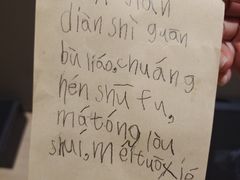 diàn shì guān
bù liáo, chuáng
hén shū fu,
mátóng lòu
shuí, méi tuōxié